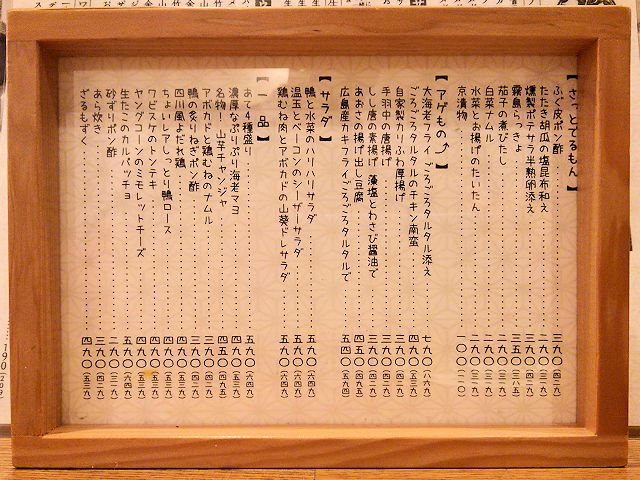 【さっとでるもん】
ふぐ皮ポン酢 三九〇(四二九)
たたき胡瓜の塩昆布和え 二九〇(三一九)
燻製ポテサラ半熟卵添え 三九〇(四二九)
霧島らっきょ 三五〇(三八五)
茄子の煮びたし 二九〇(三一九)
白菜ナムル 二九〇(三一九)
水菜とお揚げのたいたん 二九〇(三一九)
京漬物 一〇〇(一一〇)
【アゲもの⤴】
大海老フライ ごろごろタルタル添え 七九〇(八六九)
ごろごろタルタルのチキン南蛮 四九〇(五三九)
自家製カリふわ厚揚げ 三九〇(四二九)
手羽中の唐揚げ 三九〇(四二九)
しし唐の素揚げ 藻塩とわさび醤油で 三九〇(四二九)
あおさの揚げ出し豆腐 四五〇(四九五)
広島産カキフライごろごろタルタルで 五四〇(五九四)
【サラダ】
鴨と水菜のハリハリサラダ 五九〇(六四九)
温玉とベーコンのシーザーサラダ 五九〇(六四九)
鶏むね肉とアボカドの山葵ドレサラダ 五九〇(六四九)
【一品】
あて4種盛り 五九〇(六四九)
濃厚なぷりぷり海老マヨ 四九〇(五三九)
名物！山芋チャンジャ 四五〇(四九五)
アボカドと鶏むねのナムル 三九〇(四二九)
鴨の炙りねぎポン酢 三九〇(四二九)
四川風よだれ鶏 四九〇(五三九)
ちょいレアしっとり鴨ロース 四九〇(五三九)
ワビスケのトンテキ 四九〇(五三九)
ヤングコーンのミモレットチーズ 四九〇(五三九)
生たこのカルパッチョ 五九〇(六四九)
砂ずりポン酢 二九〇(三一九)
あら炊き 三九〇(四二九)
ざるもずく 四九〇(五三九)
190